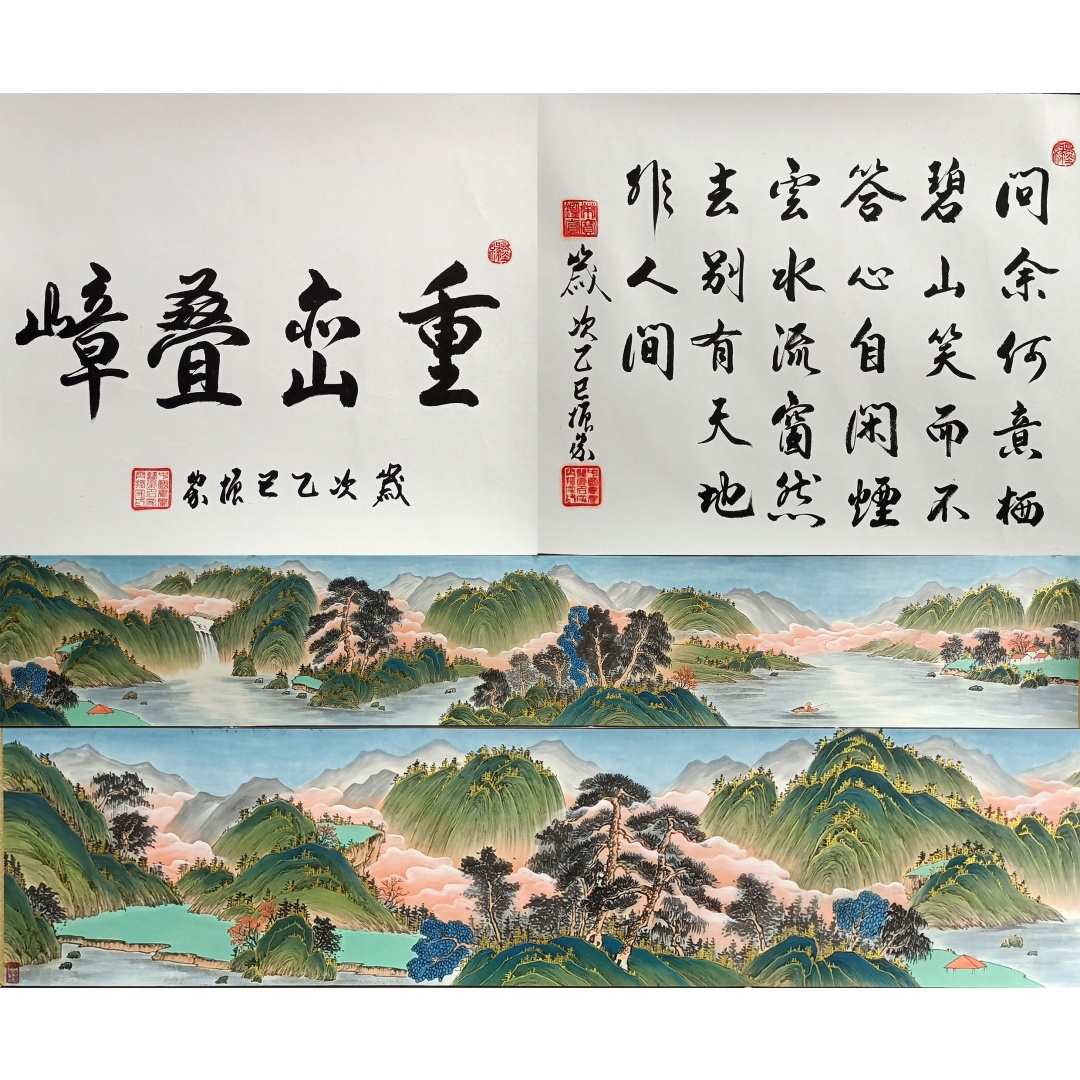 重峦叠嶂
歲次乙巳振
问余何意栖
碧山笑而不
答心自闲煙
雲水流窗然
去别有天地
非人间
歲次乙巳振